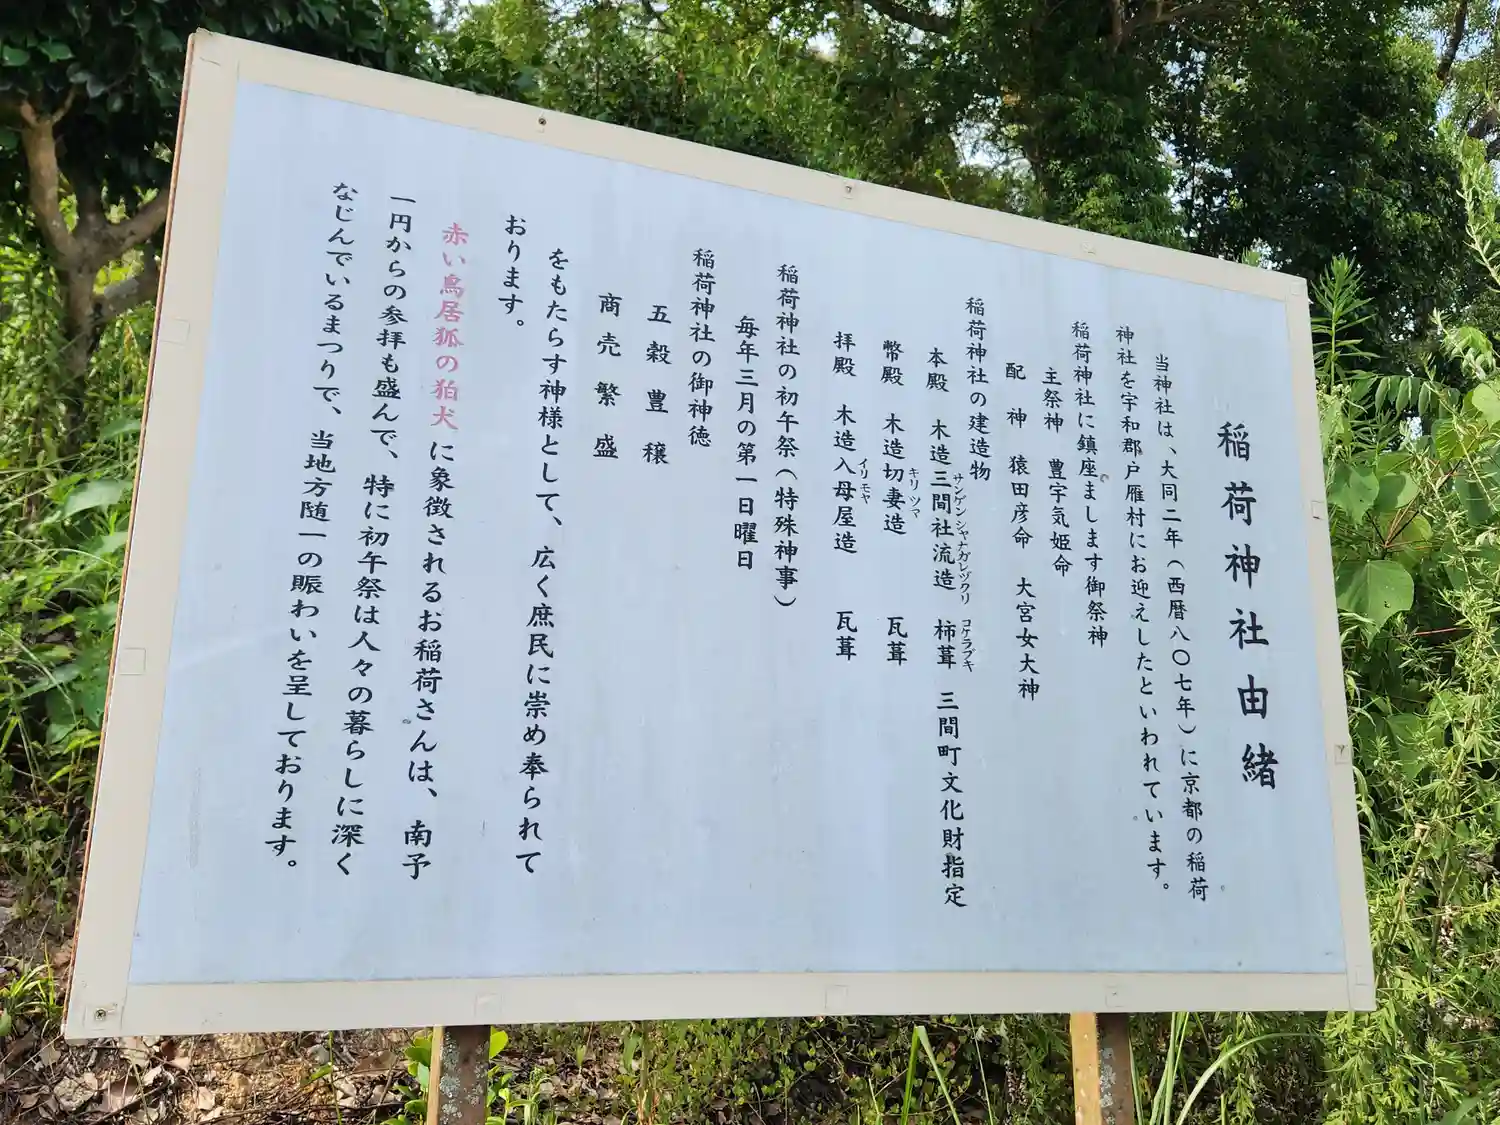 稲荷神社由緒
当神社は、大同二年(西暦八〇七年)に京都の稲荷
神社を宇和郡戸雁村にお迎えしたといわれています。
稲荷神社に鎮座まします御祭神
主祭神 豊宇気姫命
配神 猿田彦命 大宮女大神
稲荷神社の建造物
本殿 木造三間社流造 柿葺 三間町文化財指定
サンゲンシャナガレヅクリ コケラブキ
幣殿 木造切妻造 瓦葺
キリツマ
拝殿 木造入母屋造 瓦葺
イリモヤ
稲荷神社の初午祭(特殊神事)
毎年三月の第一日曜日
稲荷神社の御神徳
五穀豊穣
商売繁盛
をもたらす神様として、広く庶民に崇め奉られて
おります。
赤い鳥居狐の狛犬に象徴されるお稲荷さんは、南予
一円からの参拝も盛んで、特に初午祭は人々の暮らしに深く
なじんでいるまつりで、当地方随一の賑わいを呈しております。